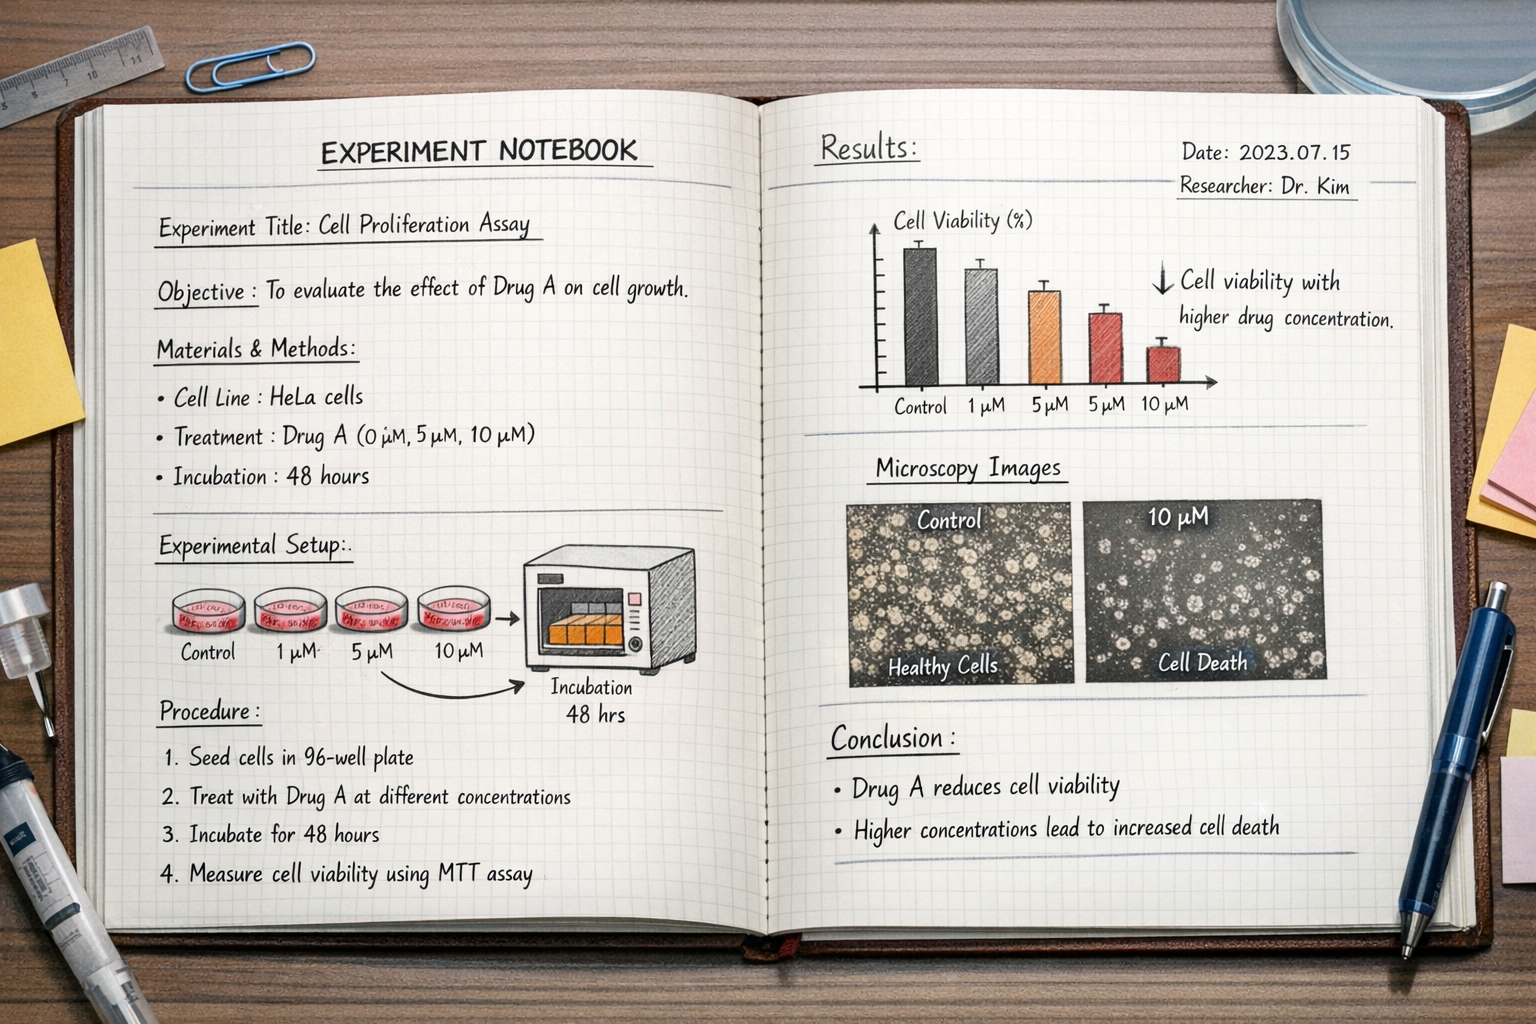 EXPERIMENT NOTEBOOK
Experiment Title: Cell Proliferation Assay
Objective: To evaluate the effect of Drug A on cell growth.
Materials & Methods:
• Cell Line: HeLa cells
• Treatment: Drug A (0 μM, 5 μM, 10 μM)
• Incubation: 48 hours
Experimental Setup:.
Control 1 μM 5 μM 10 μM
Incubation
48 hrs
Procedure:
1. Seed cells in 96-well plate
2. Treat with Drug A at different concentrations
3. Incubate for 48 hours
4. Measure cell viability using MTT assay
Results:
Date: 2023.07.15
Researcher: Dr. Kim
Cell Viability (%)
↓ Cell viability with
higher drug concentration.
Control 1 μM 5 μM 5 μM 10 μM
Microscopy Images
Control
Healthy Cells
10 μM
Cell Death
Conclusion:
• Drug A reduces cell viability
• Higher concentrations lead to increased cell death